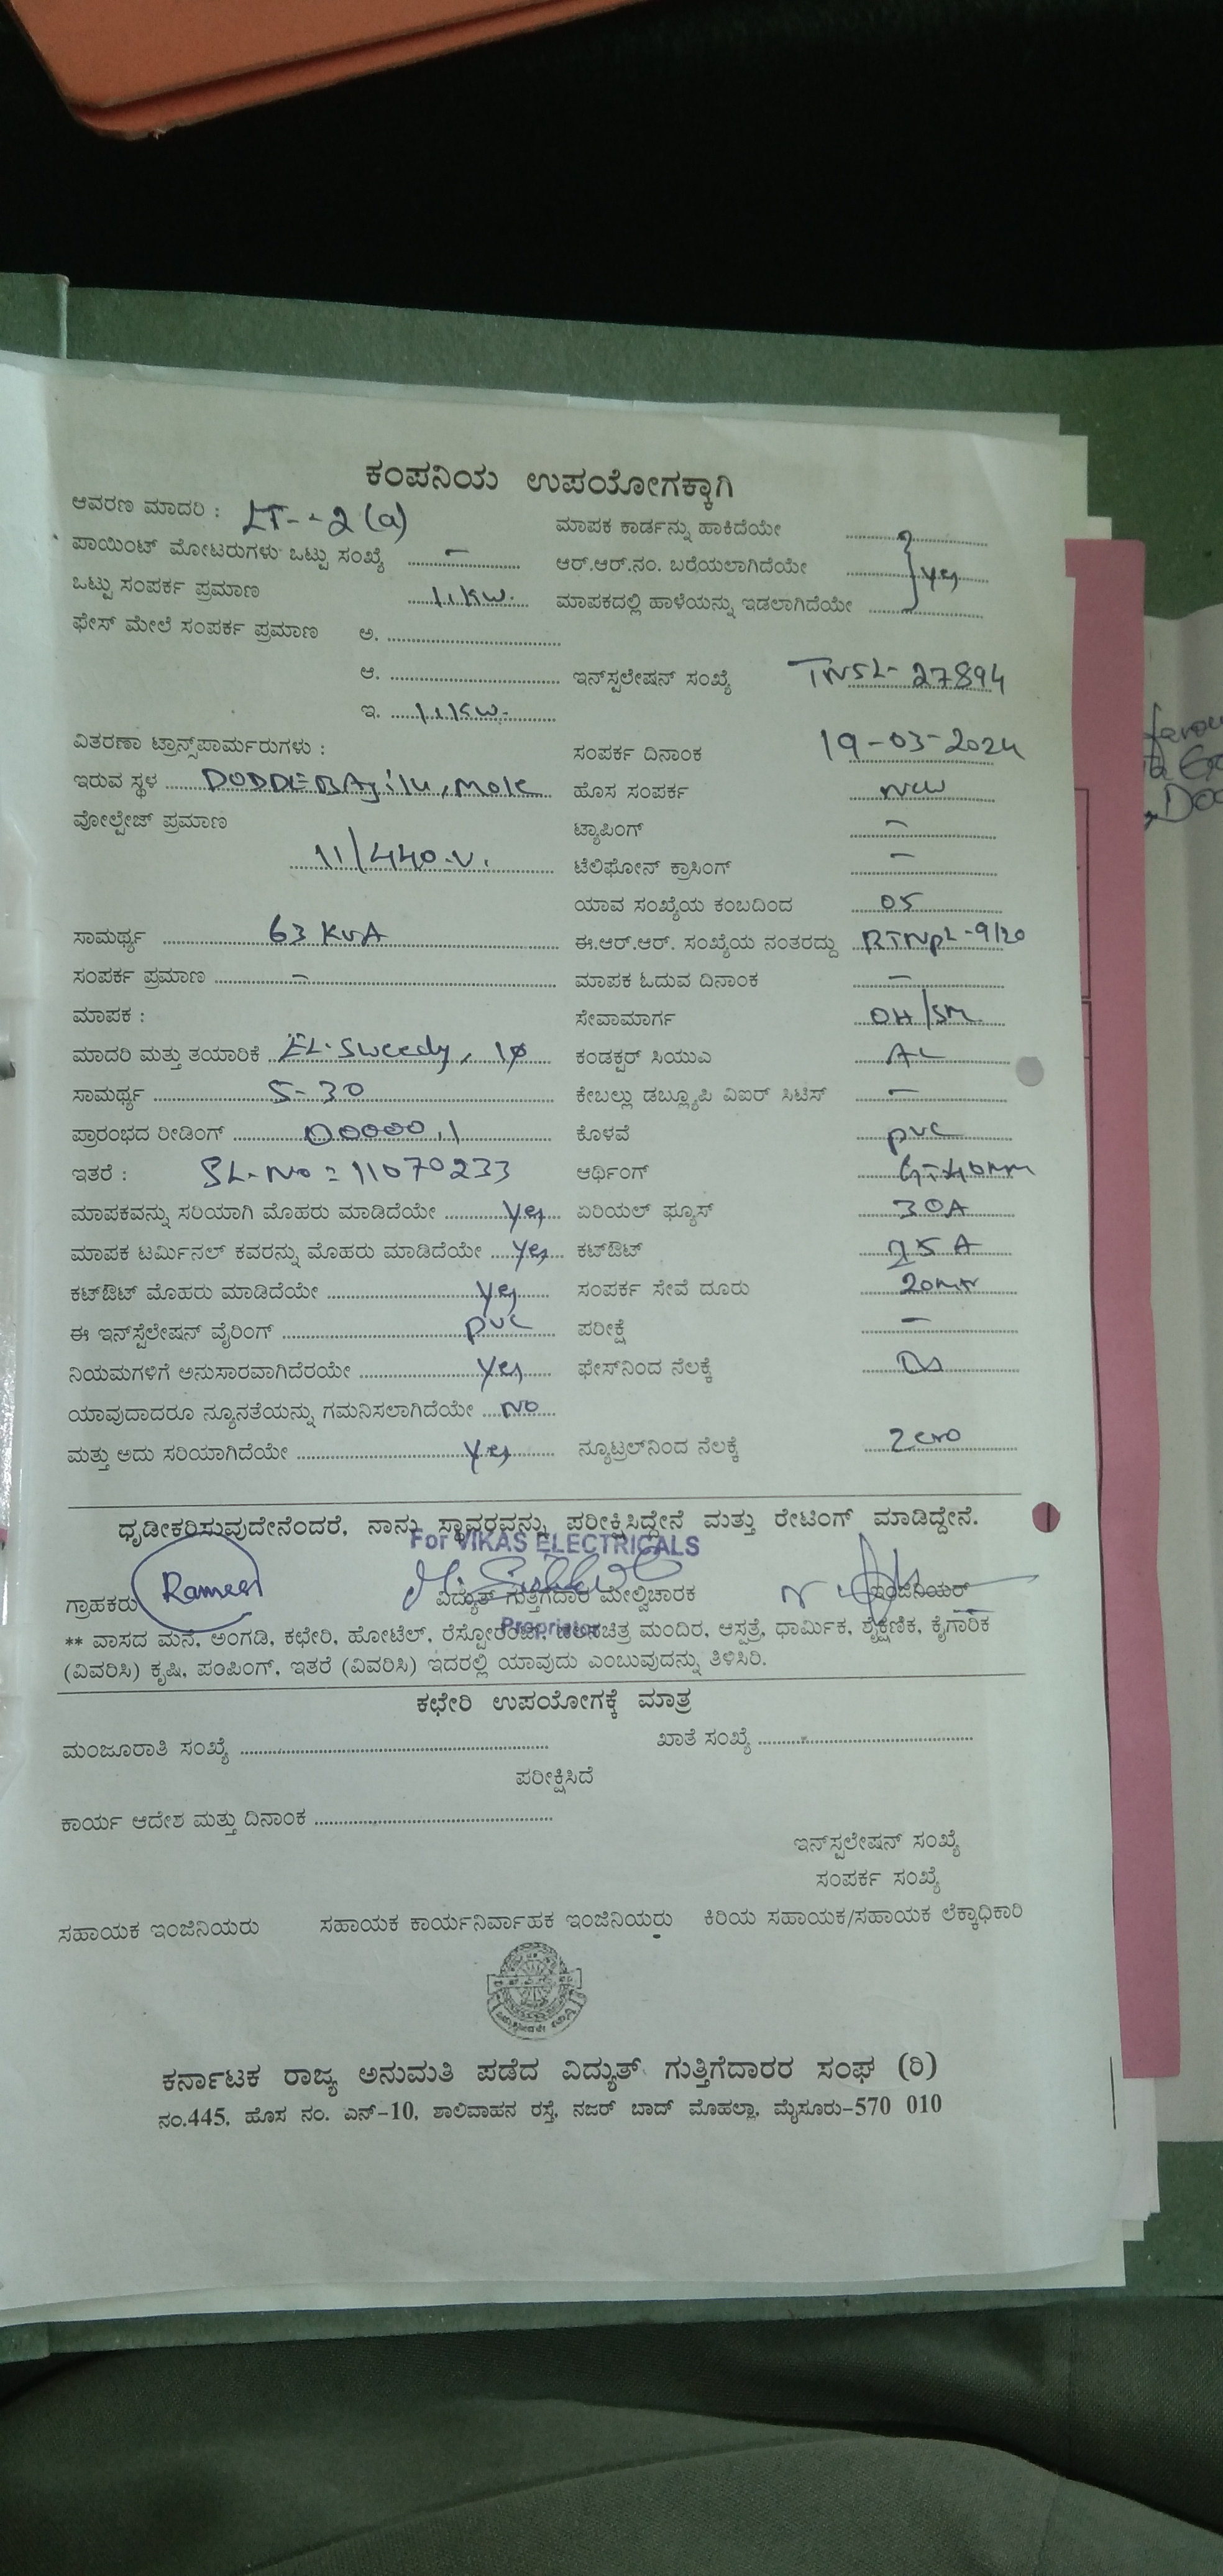 ಕಂಪನಿಯ ಉಪಯೋಗಕ್ಕಾಗಿ
ಆವರಣ ಮಾದರಿ : LT--2(a) ಮಾಪಕ ಕಾರ್ಡನ್ನು ಹಾಕಿದೆಯೇ
ಪಾಯಿಂಟ್ ಮೋಟರುಗಳು ಒಟ್ಟು ಸಂಖ್ಯೆ – ಆರ್.ಆರ್.ನಂ. ಬರೆಯಲಾಗಿದೆಯೇ } yes
ಒಟ್ಟು ಸಂಪರ್ಕ ಪ್ರಮಾಣ 1.1KW. ಮಾಪಕದಲ್ಲಿ ಹಾಳೆಯನ್ನು ಇಡಲಾಗಿದೆಯೇ
ಫೇಸ್ ಮೇಲೆ ಸಂಪರ್ಕ ಪ್ರಮಾಣ ಅ.
ಆ. ಇನ್‌ಸ್ಪಲೇಷನ್ ಸಂಖ್ಯೆ TNSL-27894
ಇ. 1.1KW.
ವಿತರಣಾ ಟ್ರಾನ್ಸ್‌ಪಾರ್ಮರುಗಳು : ಸಂಪರ್ಕ ದಿನಾಂಕ 19-03-2024
ಇರುವ ಸ್ಥಳ DODDEBAgilu, Mole ಹೊಸ ಸಂಪರ್ಕ New
ವೋಲ್ಟೇಜ್ ಪ್ರಮಾಣ ಟ್ಯಾಪಿಂಗ್ –
11/440.V. ಟೆಲಿಫೋನ್ ಕ್ರಾಸಿಂಗ್ –
ಯಾವ ಸಂಖ್ಯೆಯ ಕಂಬದಿಂದ 05
ಸಾಮರ್ಥ್ಯ 63 KVA ಈ.ಆರ್.ಆರ್. ಸಂಖ್ಯೆಯ ನಂತರದ್ದು RTNPL-9120
ಸಂಪರ್ಕ ಪ್ರಮಾಣ – ಮಾಪಕ ಓದುವ ದಿನಾಂಕ –
ಮಾಪಕ : ಸೇವಾಮಾರ್ಗ OH/SM
ಮಾದರಿ ಮತ್ತು ತಯಾರಿಕೆ EL-Sweedy, 1φ ಕಂಡಕ್ಟರ್ ಸಿಯುಎ AL
ಸಾಮರ್ಥ್ಯ 5-30 ಕೇಬಲ್ಲು ಡಬ್ಲ್ಯೂಪಿ ವಿಐರ್ ಸಿಟಿಸ್ –
ಪ್ರಾರಂಭದ ರೀಡಿಂಗ್ 00000.1 ಕೊಳವೆ pvc
ಇತರೆ : SL-No = 11070233 ಆರ್ಥಿಂಗ್
ಮಾಪಕವನ್ನು ಸರಿಯಾಗಿ ಮೊಹರು ಮಾಡಿದೆಯೇ yes ಏರಿಯಲ್ ಫ್ಯೂಸ್ 30A
ಮಾಪಕ ಟರ್ಮಿನಲ್ ಕವರನ್ನು ಮೊಹರು ಮಾಡಿದೆಯೇ yes ಕಟ್‌ಔಟ್
ಕಟ್‌ಔಟ್ ಮೊಹರು ಮಾಡಿದೆಯೇ yes ಸಂಪರ್ಕ ಸೇವೆ ದೂರು 20mtr
ಈ ಇನ್‌ಸ್ಟೆಲೇಷನ್ ವೈರಿಂಗ್ pvc ಪರೀಕ್ಷೆ –
ನಿಯಮಗಳಿಗೆ ಅನುಸಾರವಾಗಿದೆರಯೇ yes ಫೇಸ್‌ನಿಂದ ನೆಲಕ್ಕೆ
ಯಾವುದಾದರೂ ನ್ಯೂನತೆಯನ್ನು ಗಮನಿಸಲಾಗಿದೆಯೇ No
ಮತ್ತು ಅದು ಸರಿಯಾಗಿದೆಯೇ yes ನ್ಯೂಟ್ರಲ್‌ನಿಂದ ನೆಲಕ್ಕೆ Zero
ಧೃಡೀಕರಿಸುವುದೇನೆಂದರೆ, ನಾನು ಸ್ಥಾವರವನ್ನು ಪರೀಕ್ಷಿಸಿದ್ದೇನೆ ಮತ್ತು ರೇಟಿಂಗ್ ಮಾಡಿದ್ದೇನೆ.
For VIKAS ELECTRICALS
ಗ್ರಾಹಕರು Ramesh ವಿದ್ಯುತ್ ಗುತ್ತಿಗೆದಾರ ಮೇಲ್ವಿಚಾರಕ ಇಂಜಿನಿಯರ್
Proprietor
** ವಾಸದ ಮನೆ, ಅಂಗಡಿ, ಕಛೇರಿ, ಹೋಟೆಲ್, ರೆಸ್ಟೋರೆಂಟು, ಚಲನಚಿತ್ರ ಮಂದಿರ, ಆಸ್ಪತ್ರೆ, ಧಾರ್ಮಿಕ, ಶೈಕ್ಷಣಿಕ, ಕೈಗಾರಿಕ
(ವಿವರಿಸಿ) ಕೃಷಿ, ಪಂಪಿಂಗ್, ಇತರೆ (ವಿವರಿಸಿ) ಇದರಲ್ಲಿ ಯಾವುದು ಎಂಬುವುದನ್ನು ತಿಳಿಸಿರಿ.
ಕಛೇರಿ ಉಪಯೋಗಕ್ಕೆ ಮಾತ್ರ
ಮಂಜೂರಾತಿ ಸಂಖ್ಯೆ ಖಾತೆ ಸಂಖ್ಯೆ
ಪರೀಕ್ಷಿಸಿದೆ
ಕಾರ್ಯ ಆದೇಶ ಮತ್ತು ದಿನಾಂಕ
ಇನ್‌ಸ್ಪಲೇಷನ್ ಸಂಖ್ಯೆ
ಸಂಪರ್ಕ ಸಂಖ್ಯೆ
ಸಹಾಯಕ ಇಂಜಿನಿಯರು ಸಹಾಯಕ ಕಾರ್ಯನಿರ್ವಾಹಕ ಇಂಜಿನಿಯರು ಕಿರಿಯ ಸಹಾಯಕ/ಸಹಾಯಕ ಲೆಕ್ಕಾಧಿಕಾರಿ
ಕರ್ನಾಟಕ ರಾಜ್ಯ ಅನುಮತಿ ಪಡೆದ ವಿದ್ಯುತ್ ಗುತ್ತಿಗೆದಾರರ ಸಂಘ (ರಿ)
ನಂ.445, ಹೊಸ ನಂ. ಎನ್-10, ಶಾಲಿವಾಹನ ರಸ್ತೆ, ನಜರ್ ಬಾದ್ ಮೊಹಲ್ಲಾ, ಮೈಸೂರು-570 010